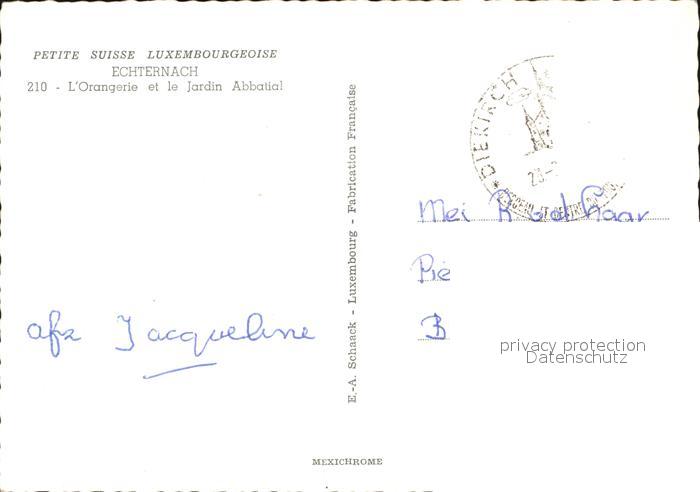 PETITE SUISSE LUXEMBOURGEOISE
ECHTERNACH
210 - L'Orangerie et le Jardin Abbatial
afz Jacqueline
E.-A. Schaack - Luxembourg - Fabrication Française
DIEKIRCH
23-
Mei
Pie
B
privacy protection
Datenschutz
MEXICHROME